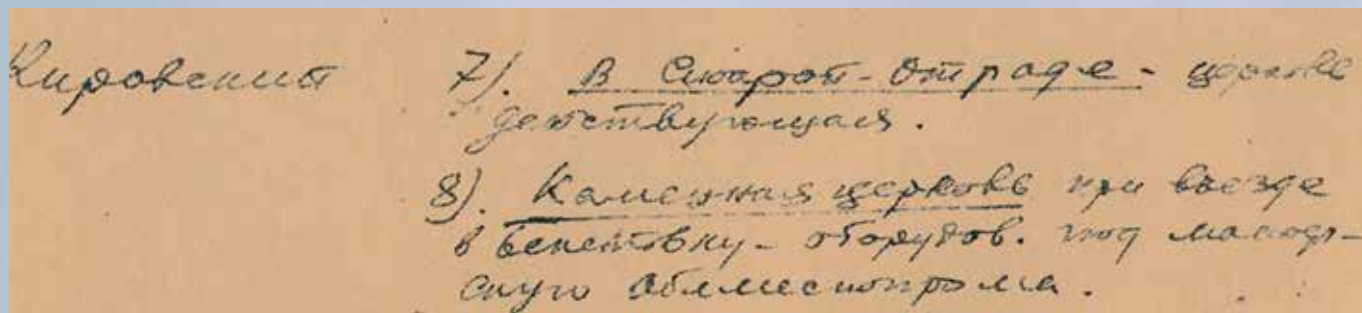 Кировский 7). В Старой-Отраде - церковь
действующая.
8). Каменная церковь при въезде
в Бекетовку - оборудов. под
скую Облместпрома.